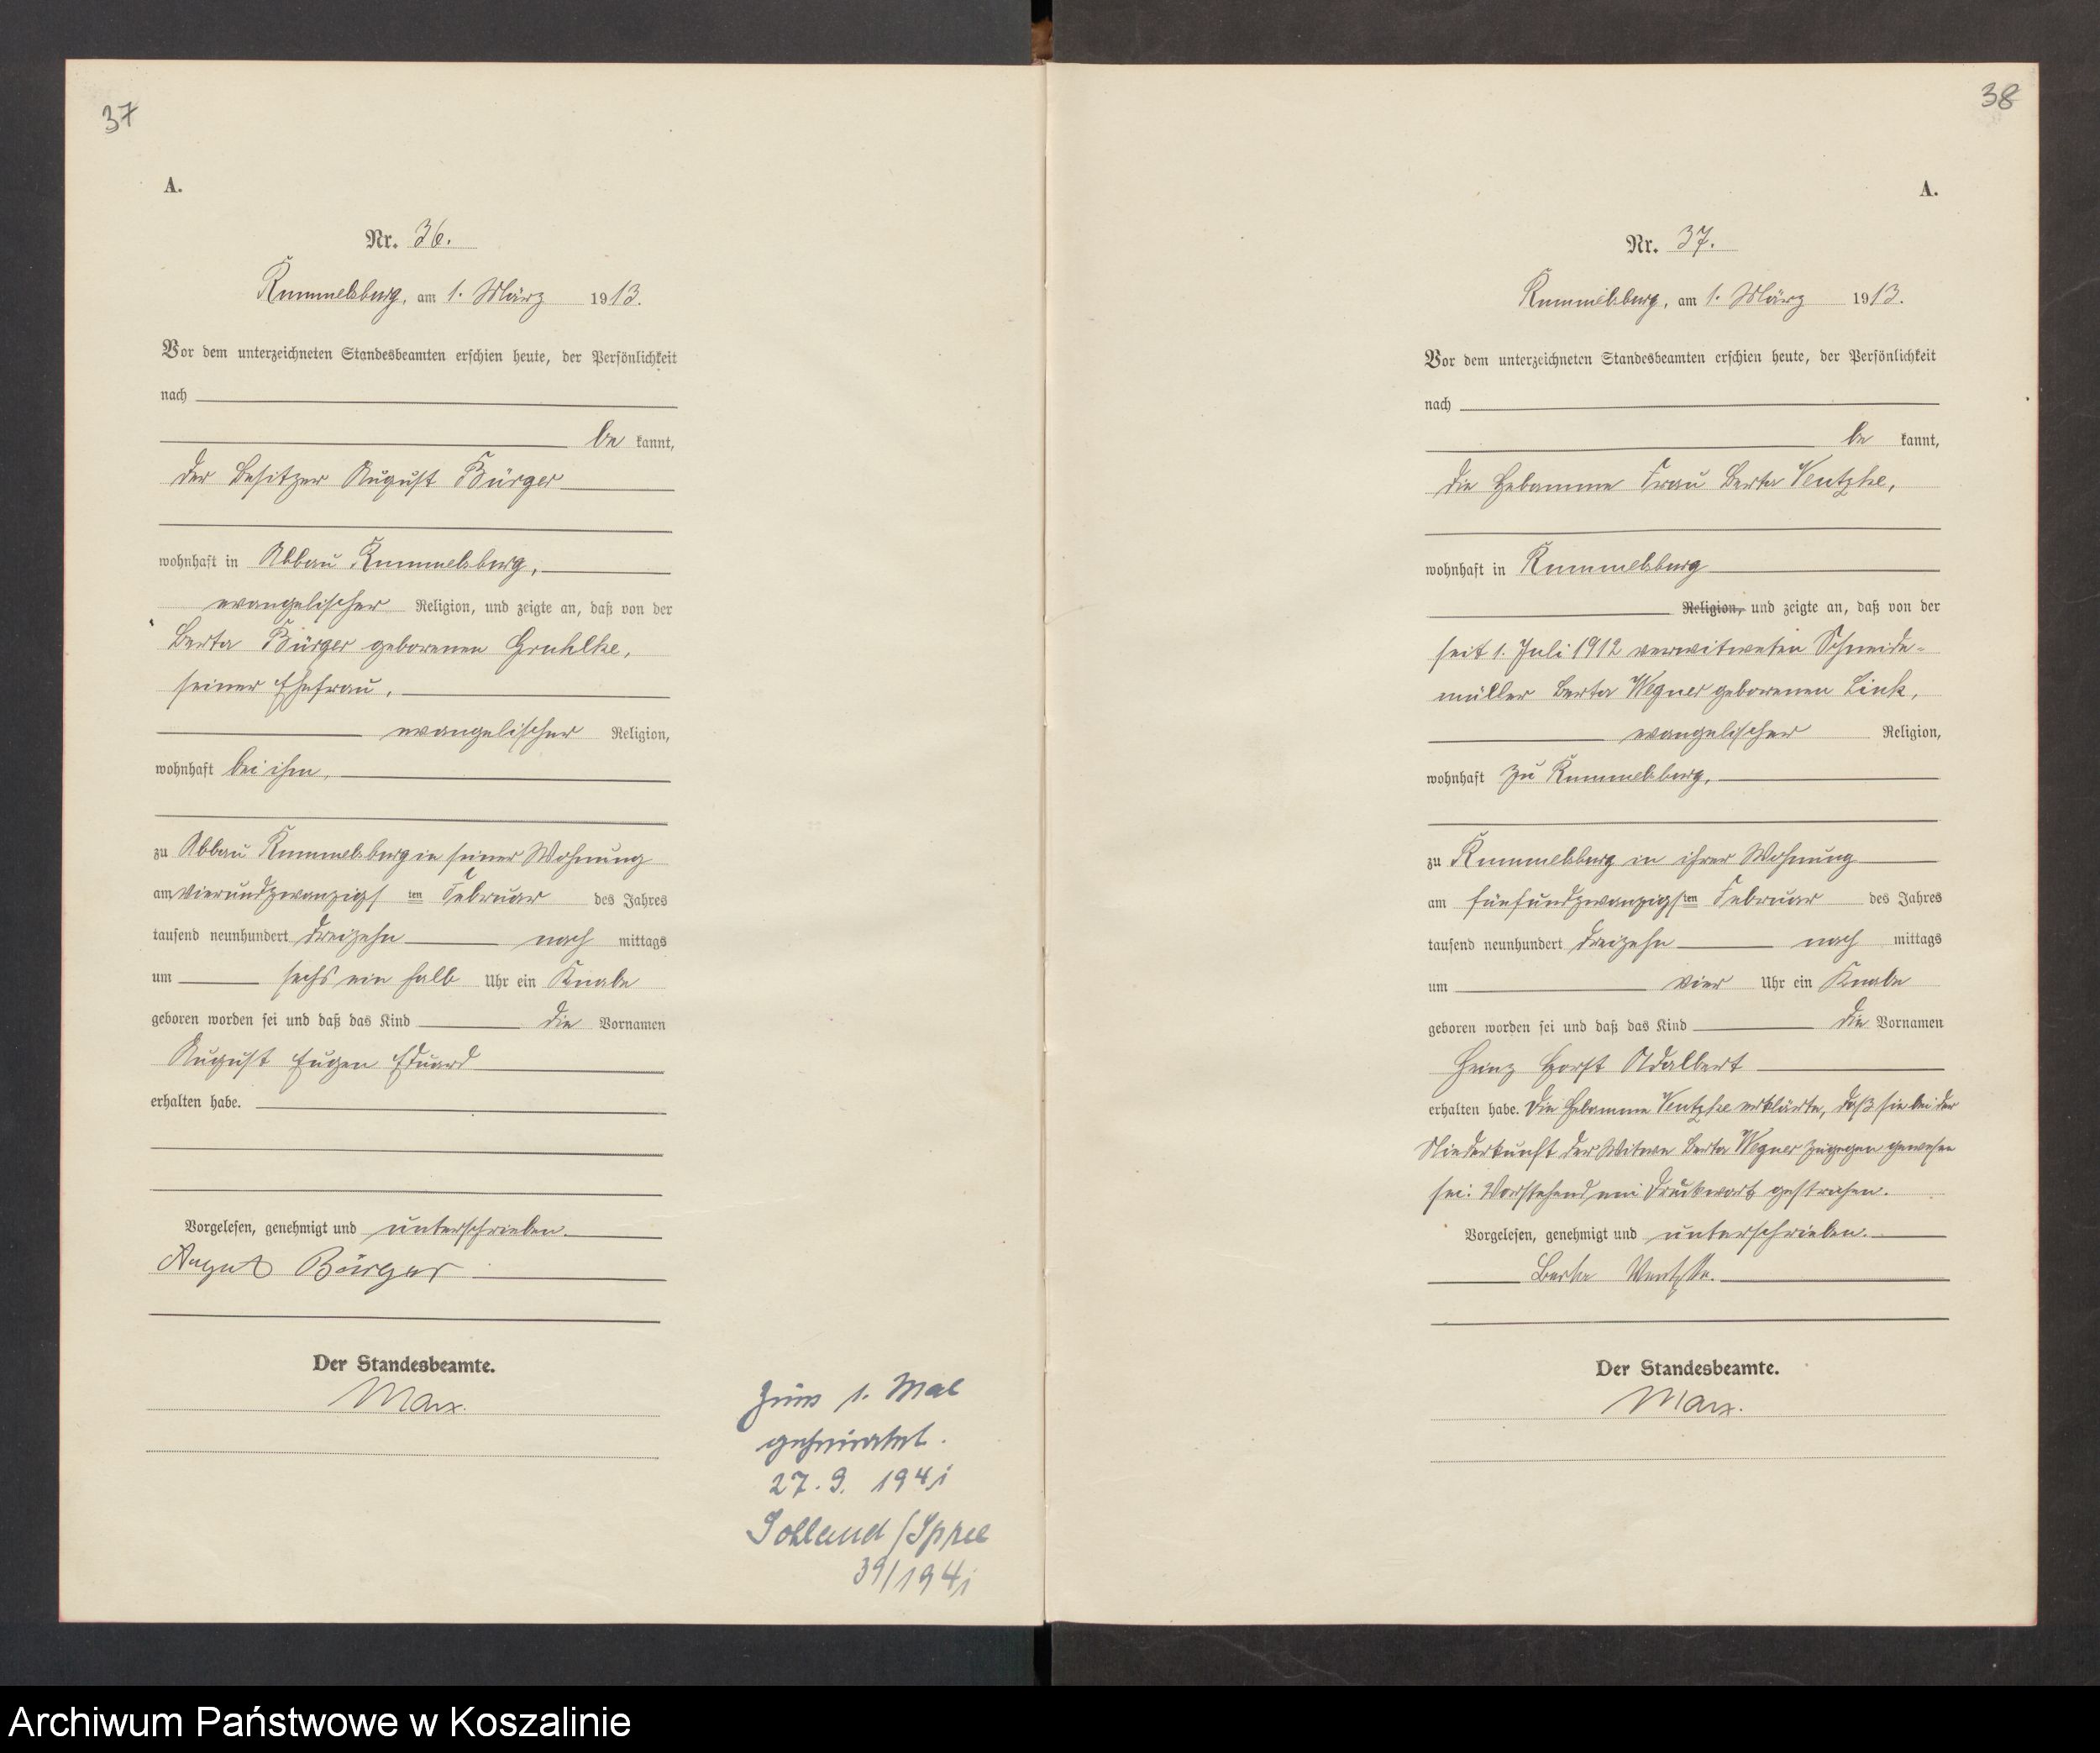 37
A.
Nr. 36.
Rummelsburg, am 1. März 1913.
Vor dem unterzeichneten Standesbeamten erschien heute, der Persönlichkeit
nach
be kannt,
der Besitzer August Bürger
wohnhaft in Abbau Rummelsburg,
evangelischer Religion, und zeigte an, daß von der
Berta Bürger geborenen Gruhlke,
seiner Ehefrau,
evangelischer Religion,
wohnhaft bei ihm,
zu Abbau Rummelsburg in seiner Wohnung
am vierundzwanzigs ten Februar des Jahres
tausend neunhundert dreizehn nach mittags
um sechs ein halb Uhr ein Knabe
geboren worden sei und daß das Kind die Vornamen
August Eugen Eduard
erhalten habe.
Vorgelesen, genehmigt und unterschrieben.
August Bürger
Der Standesbeamte.
Marx.
Zum 1. Mal
geheiratet.
27.9. 1941
Sohland/Spree
39/1941
38
A.
Nr. 37.
Rummelsburg, am 1. März 1913.
Vor dem unterzeichneten Standesbeamten erschien heute, der Persönlichkeit
nach
be kannt,
die Hebamme Frau Berta Ventzke,
wohnhaft in Rummelsburg
Religion, und zeigte an, daß von der
seit 1. Juli 1912 verwitweten Schneide-
müller Berta Wegner geborenen Link,
evangelischer Religion,
wohnhaft zu Rummelsburg,
zu Rummelsburg in ihrer Wohnung
am fünfundzwanzigsten Februar des Jahres
tausend neunhundert dreizehn nach mittags
um vier Uhr ein Knabe
geboren worden sei und daß das Kind die Vornamen
Heinz Horst Adalbert
erhalten habe. Die Hebamme Ventzke erklärte, daß sie bei der
Niederkunft der Witwe Berta Wegner zugegen gewesen
sei. Vorstehend ein Druckwort gestrichen.
Vorgelesen, genehmigt und unterschrieben.
Berta Ventzke.
Der Standesbeamte.
Marx.
Archiwum Państwowe w Koszalinie